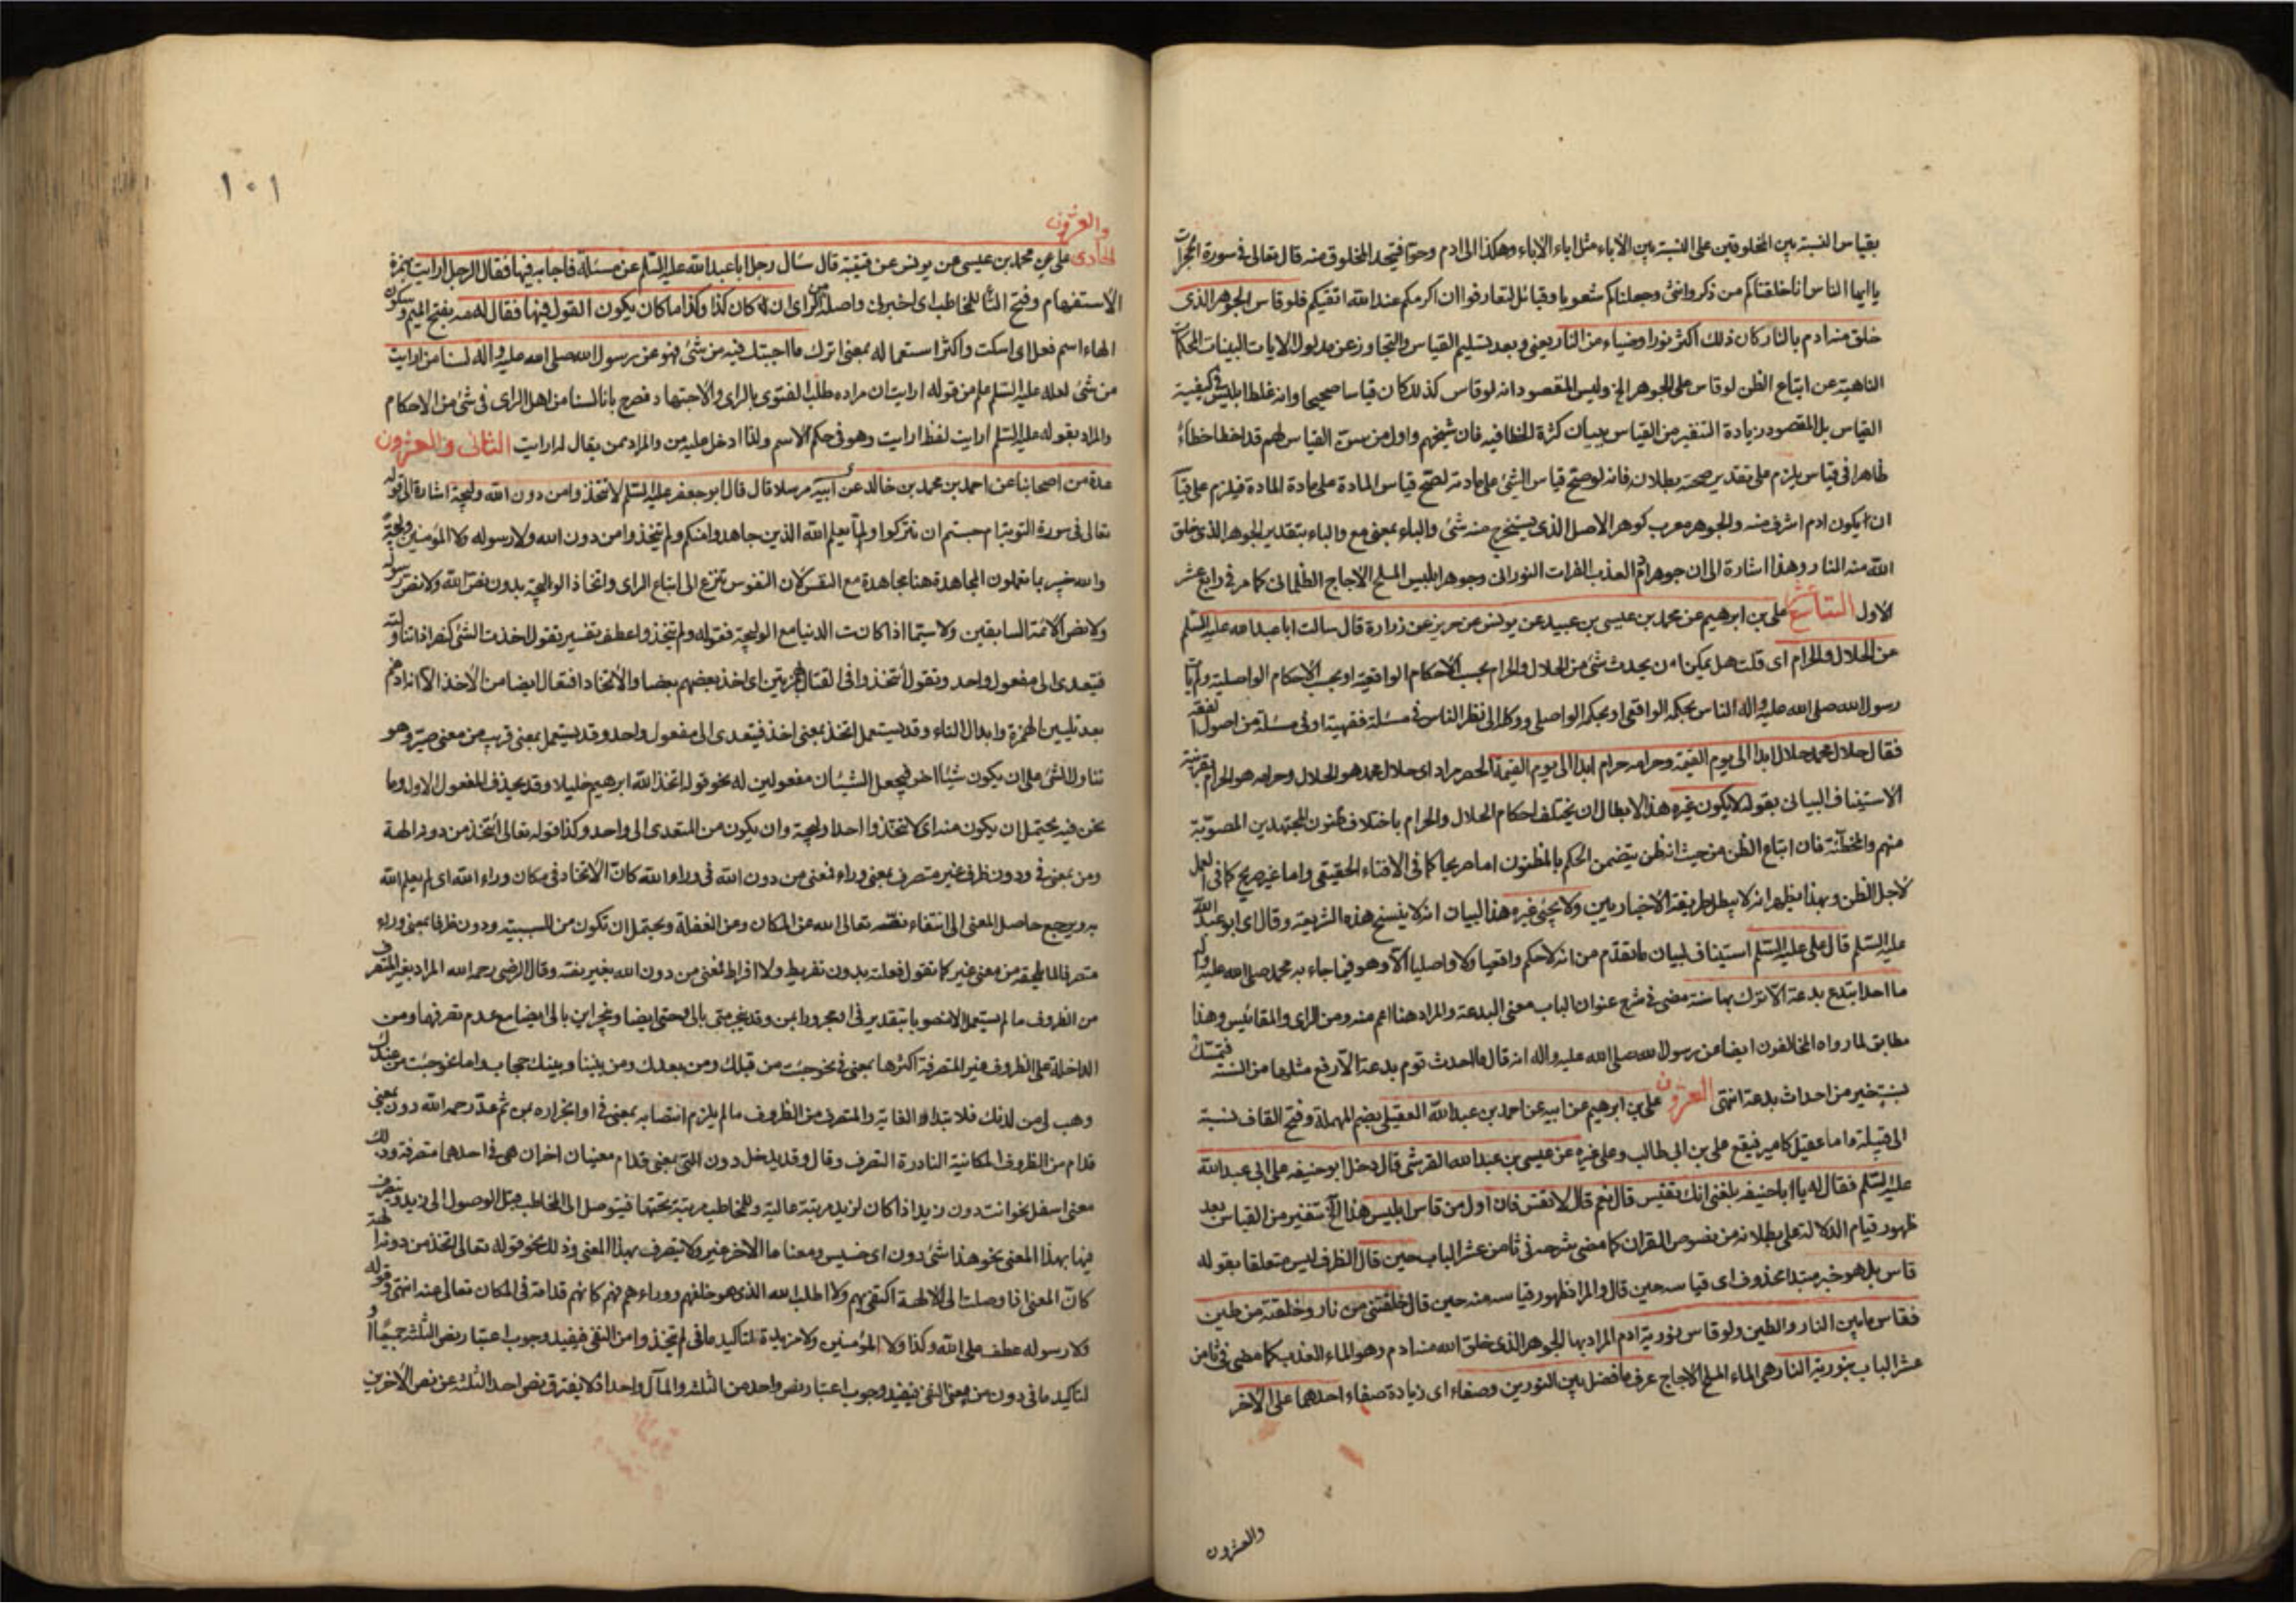 بقياس النسبة بين المخلوقين على النسبة بين الآباء مثل اباء الاباء وهكذا الى ادم وحوا فيتحد المخلوق منه قال تعالى في سورة الحجرات
يا ايها الناس انا خلقناكم من ذكر وانثى وجعلناكم شعوبا وقبائل لتعارفوا ان اكرمكم عند الله اتقيكم فلو قاس الجوهر الذى
خلق منه ادم بالنار كان ذلك اكثر نورا وضياء من النار يعنى وبعد تسليم القياس والتجاوز عن مدلول الايات البينات المحكمات
الناهية عن اتباع الظن لو قاس على الجوهر الخ وليس المقصود انه لو قاس كذلك كان قياسا صحيحا وانه غلط ابليس في كيفية
القياس بل المقصود زيادة التنفير من القياس ببيان كثرة الخطا فيه فان شيخهم واول من سن القياس لهم قد اخطا خطاء
ظاهرا في قياس يلزم على تقدير صحته بطلانه فانه لو صح قياس الشئ على مادته لصح قياس المادة على مادة المادة فيلزم على قياسه
ان يكون ادم اشرف منه والجوهر معرب كوهر الاصل الذى يستخرج منه شئ والباء بمعنى مع والباء بتقدير الجوهر الذى خلق
الله منه النار وهذا اشارة الى ان جوهر ادم العذب الفرات النورانى وجوهر ابليس الملح الاجاج الظلمانى كما مر في رابع عشر
الاول التاسع عشر على بن ابرهيم عن محمد بن عيسى بن عبيد عن يونس عن حريز عن زرارة قال سالت ابا عبد الله عليه السلم
عن الحلال والحرام اى قلت هل يمكن ان يحدث شئ من الحلال والحرام بحسب الاحكام الواقعية او بحسب الاحكام الواصلية ولم يات
رسول الله صلى الله عليه واله الناس بحكمه الواقعى او بحكمه الواصلى ووكله الى نظر الناس في مسئلة فقهية او في مسئلة من اصول الفقه
فقال حلال محمد حلال ابدا الى يوم القيمة وحرامه حرام ابدا الى يوم القيمة الحصر مراد اى حلال محمد هو الحلال وحرامه هو الحرام بقرينة
الاستيناف البيانى بقوله لا يكون غيره هذا لابطال ان يختلف احكام الحلال والحرام باختلاف ظنون المجتهدين المصوبة
منهم والمخطئة فان اتباع الظن من حيث انه ظن يتضمن الحكم بالمظنون اما صريحا كما في الافتاء الحقيقى واما غير صريح كما في العمل
لاجل الظن وبهذا يظهر انه لا يبطل طريقة الاخباريين ولا يجئ غيره هذا لبيان انه لا ينسخ هذه الشريعة وقال اى ابو عبد الله
عليه السلم قال على عليه السلم استيناف لبيان ما تقدم من انه لا حكم واقعيا ولا واصليا الا وهو فيما جاء به محمد صلى الله عليه واله
ما احد ابتدع بدعة الا ترك بها سنة مضى في شرح عنوان الباب معنى البدعة والمراد هنا اعم منه ومن الراى والمقائيس وهذا
مطابق لما رواه المخالفون ايضا عن رسول الله صلى الله عليه واله انه قال ما احدث قوم بدعة الا رفع مثلها من السنة فتمسك
بسنة خير من احداث بدعة انتهى العشرون على بن ابرهيم عن ابيه عن احمد بن عبد الله العقيلى بضم المهملة وفتح القاف نسبة
الى قبيلة واما عقيل كامير فيقع على بن ابى طالب وعلى غيره عن عيسى بن عبد الله القرشى قال دخل ابو حنيفه على ابى عبد الله
عليه السلم فقال له يا ابا حنيفه بلغنى انك تقيس قال نعم قال لا تقس فان اول من قاس ابليس هذا الخ تنفير من القياس بعد
ظهور قيام الدلالة على بطلانه من نصوص القران كما مضى بشرحه في ثامن عشر الباب حين قال الظرف ليس متعلقا بقوله
قاس بل هو خبر مبتدا محذوف اى قياسه حين قال والمراد ظهور قياسه منه حين قال خلقتنى من نار وخلقته من طين
فقاس ما بين النار والطين ولو قاس نورية ادم المراد بها الجوهر الذى خلق الله منه ادم وهو الماء العذب كما مضى في ثامن
عشر الباب بنورية النار هى الماء الملح الاجاج عرف ما فضل بين النورين وصفاء اى زيادة صفاء احدهما على الاخر
والعشرون
١٠١
الحادى والعشرون على عن محمد بن عيسى عن يونس عن قتيبة قال سأل رجل ابا عبد الله عليه السلم عن مسئلة فاجابه فيها فقال الرجل ارايت بهمزة
الاستفهام وفتح التا للخطاب اى اخبرنى واصله اى ان كان كذا وكذا ما كان يكون القول فيها فقال له مه بفتح الميم وسكون
الهاء اسم فعل اى اسكت واكثر استعماله بمعنى اترك ما اجبتك فيه من شئ فهو عن رسول الله صلى الله عليه واله لسنا من ارايت
من شئ لعله عليه السلم علم من قوله ارايت ان مراده طلب الفتوى بالراى والاجتهاد فصرح بانا لسنا من اهل الراى في شئ من الاحكام
والمراد بقوله عليه السلم ارايت لفظ ارايت وهو في حكم الاسم ولذا ادخل عليه من والمراد ممن يقال له ارايت الثانى والعشرون
عدة من اصحابنا عن احمد بن محمد بن خالد عن ابيه مرسلا قال قال ابو جعفر عليه السلم لا تتخذوا من دون الله وليجة اشارة الى قوله
تعالى في سورة التوبة ام حسبتم ان تتركوا ولما يعلم الله الذين جاهدوا منكم ولم يتخذوا من دون الله ولا رسوله ولا المؤمنين وليجة
والله خبير بما تعملون المجاهدة هنا مجاهدة مع النفس لان النفوس تنزع الى اتباع الراى واتخاذ الوليجة بدون نص الله ولا نص رسوله
ولا نص الائمة السابقين ولا سيما اذا كانت الدنيا مع الوليجة فقوله ولم يتخذوا عطف تفسير تقول اخذت الشئ كنصر اذا تناولته
فيتعدى الى مفعول واحد وتقول أتخذوا في القتال بهمزتين اى اخذ بعضهم بعضا والاتخاذ افتعال ايضا من الاخذ الا انه ادغم
بعد تليين الهمزة وابدال التاء وقد يستعمل اتخذ بمعنى اخذ فيتعدى الى مفعول واحد وقد يستعمل بمعنى قريب من معنى صير وهو
تناول الشئ على ان يكون شيئا اخر فيجعل الشيئان مفعولين له نحو قوله اتخذ الله ابرهيم خليلا وقد يحذف المفعول الاول وما
نحن فيه يحتمل ان يكون منه اى لا تتخذوا احدا وليجة وان يكون من المتعدى الى واحد وكذا قوله تعالى أأتخذ من دونه الهة
ومن بمعنى في ودون ظرف غير متصرف بمعنى وراء فمعنى من دون الله في وراء الله كان الاتخاذ في مكان وراء الله اى لم يعلم الله
به ويرجع حاصل المعنى الى انتفاء نصه تعالى الله عن المكان وعن الغفلة ويحتمل ان تكون من للسببية ودون ظرفا بمعنى وراء
متصرفا لما لحقه من معنى غير كما تقول فعلته بدون تفريط ولا افراط فمعنى من دون الله بغير نصه وقال الرضى رحمه الله المراد بغير المتصرف
من الظروف ما لم يستعمل الا منصوبا بتقدير في او مجرورا بمن وقد ينجر متى بالى وحتى ايضا وينجر اين بالى ايضا مع عدم تصرفهما ومن
الداخلة على الظروف غير المتصرفة اكثرها بمعنى في نحو جئت من قبلك ومن بعدك ومن بيننا وبينك حجاب واما نحو جئت من عندك
وهب لى من لدنك فلابتداء الغاية والمتصرف من الظروف ما لم يلزم انتصابه بمعنى في او انجراره بمن ثم عد رحمه الله دون بمعنى
قدام من الظروف المكانية النادرة التصرف وقال وقد يدخل دون التى بمعنى قدام معنيان اخران هى في احدهما متصرفة وذلك
معنى اسفل نحو انت دون زيد اذا كان لزيد مرتبة عالية وللمخاطب مرتبة تحتها فيتوصل الى المخاطب قبل الوصول الى زيد ويتصرف
فيها بهذا المعنى نحو هذا شئ دون اى خسيس ومعناها الاخر غير ولا يتصرف بهذا المعنى وذلك نحو قوله تعالى أأتخذ من دونه الهة
كان المعنى اذا وصلت الى الالهة اكتفى بهم ولا اطلب الله الذى هو خلفهم ووراءهم فهم كانهم قدامه في المكان تعالى عنه انتهى وقوله
ولا رسوله عطف على الله وكذا ولا المؤمنين ولا مزيدة لتاكيد ما في لم يتخذوا من النفى فيفيد وجوب اعتبار نص الثلثة جميعا او
لتاكيد ما في دون من معنى النفى فيفيد وجوب اعتبار نص واحد من الثلثة والمآل واحد اذ لا يفترق نص احد الثلثة عن نص الاخرين